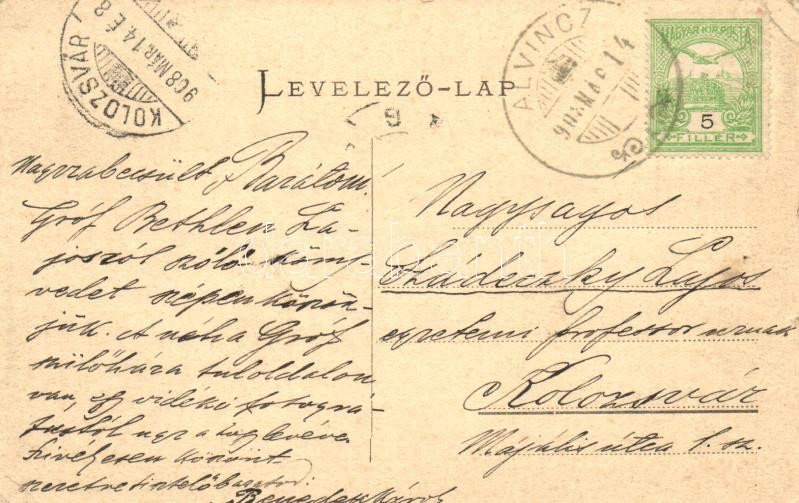 KOLOZSVÁR
908 MÁR. 14. É 8
LEVELEZŐ-LAP
ALVINCZ
908 MÁR 14
MAGYAR KIR. POSTA
5
FILLÉR
Nagyrabecsült Barátom!
Gróf Bethlen La-
joszól szóló köny-
vedet szépen köszön-
jük. A néha Gróf
szülőháza túloldalon
van, egy vidéki fotográ-
a
szívélyesen köszönt
szeretettel
Benedek Károly
Nagyságos
Szádeczky Lajos
egyetemi professor urnak
Kolozsvár
Majális útca 1. sz.